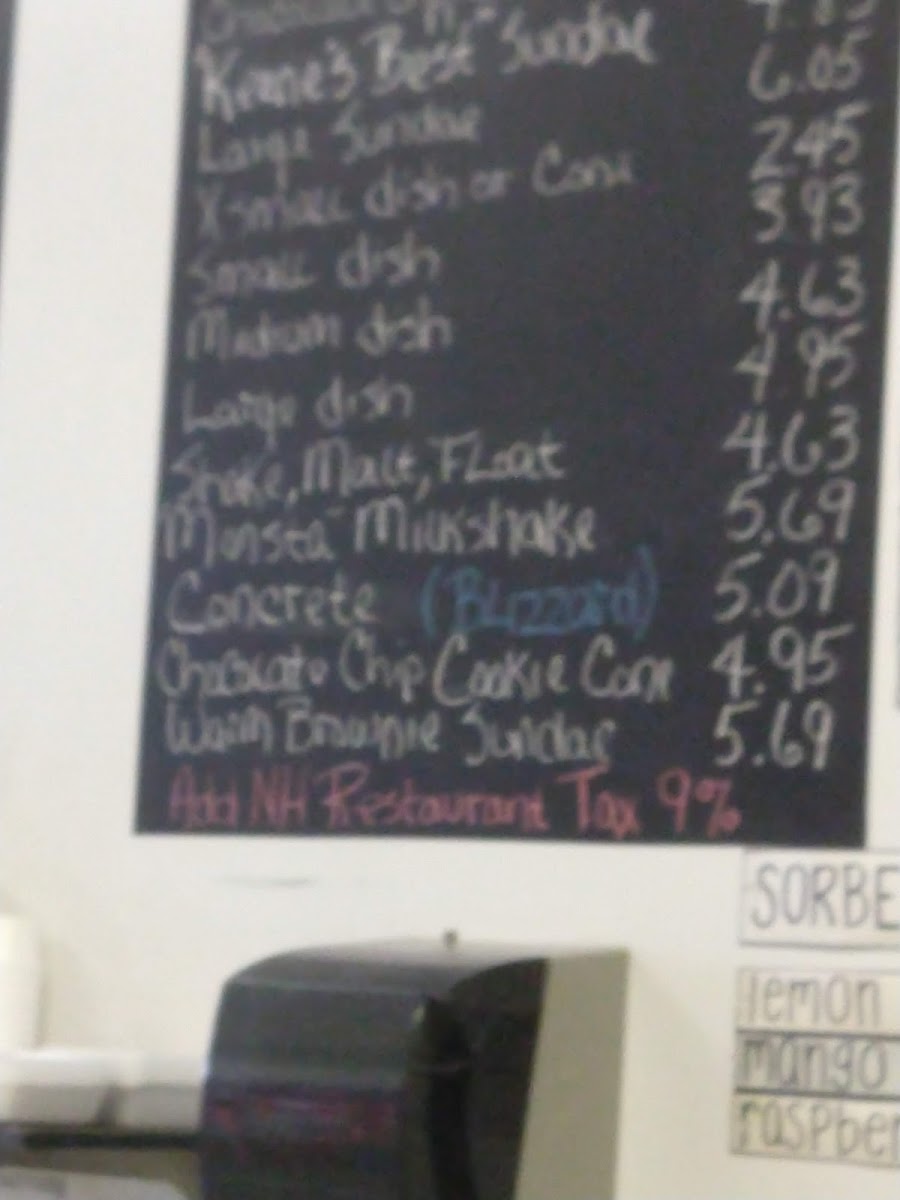 Best Sundae
Large Sundae 6.05
Xsmall dish or Cone 2.45
Small dish 3.93
Medium dish 4.63
Large dish 4.95
Shake, Malt, Float 4.63
Monsta Milkshake 5.69
Concrete (Blizzard) 5.09
Chocolate Chip Cookie Cone 4.95
Warm Brownie Sundae 5.69
Add NH Restaurant Tax 9%
SORBE
lemon
mango
raspber